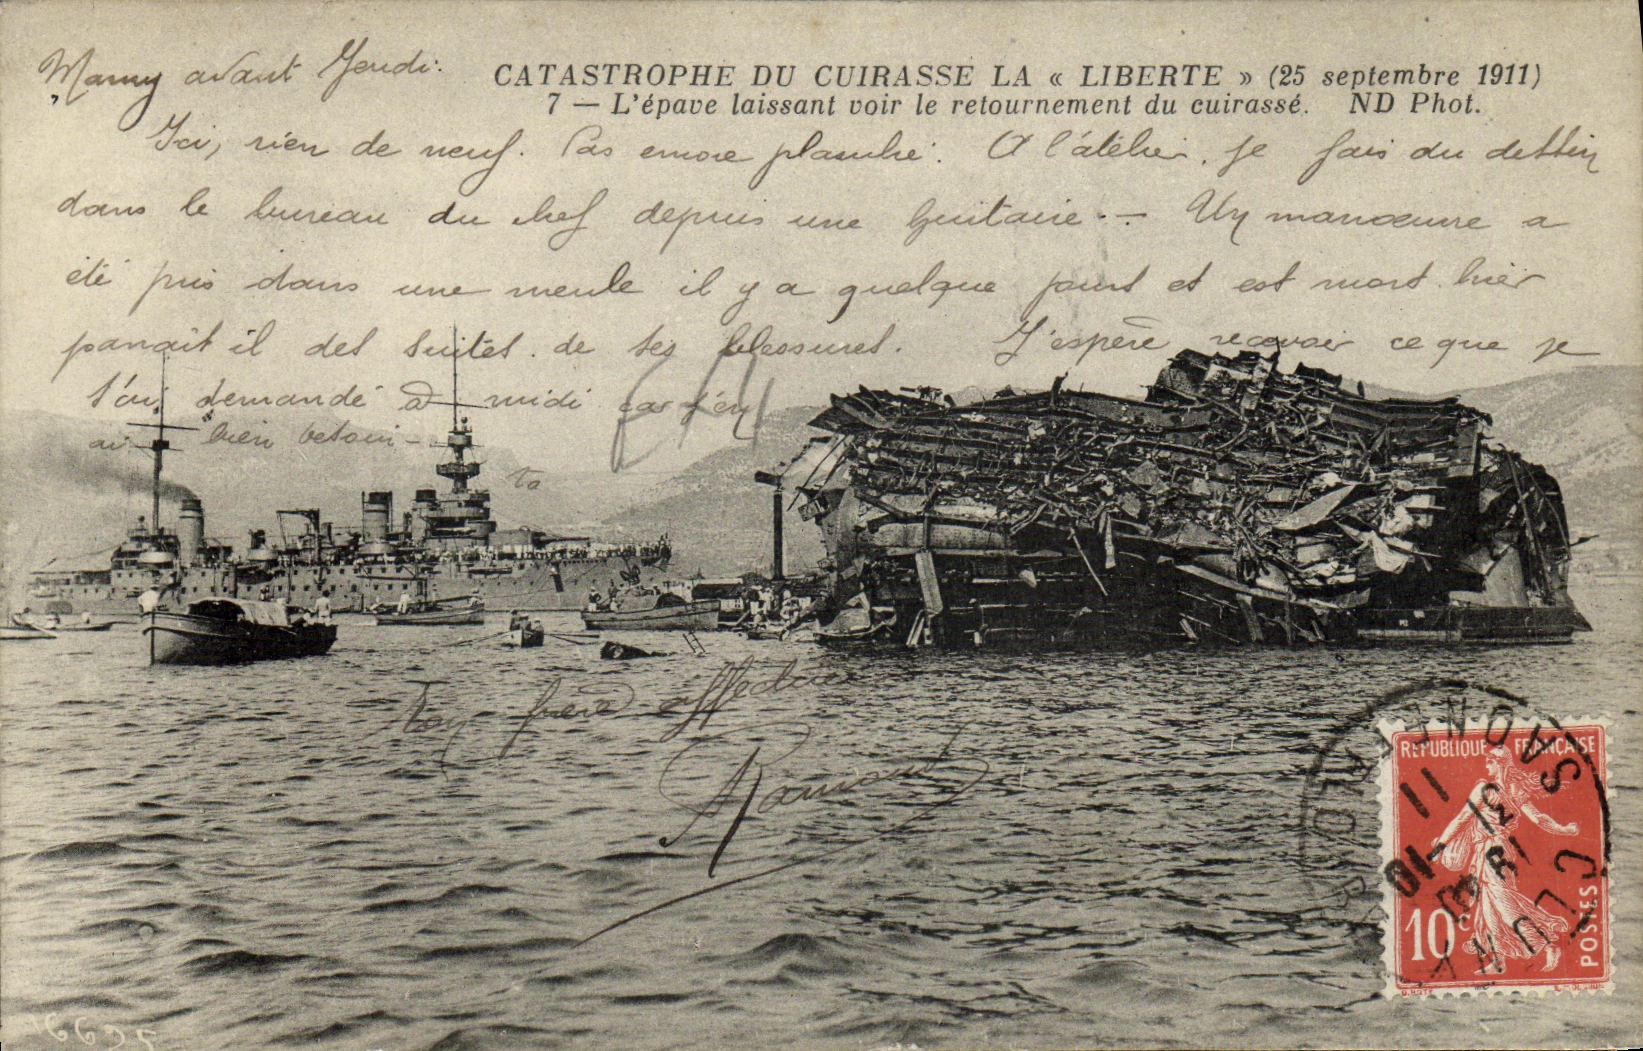 CATASTROPHE DU CUIRASSE LA « LIBERTE » (25 septembre 1911)
7 — L'épave laissant voir le retournement du cuirassé. ND Phot.
avant Jeudi.
Ici, rien de neuf. Pas encore planché. A l'atelier, je fais du dessin
dans le bureau du chef depuis une huitaine. — Un manœuvre a
été pris dans une meule il y a quelque jours et est mort hier
parait il des suites de ses blessures. J'espère recevoir ce que je
t'ai demandé à midi car j'en
ai bien besoin —
Ton frère affectueux
REPUBLIQUE FRANÇAISE
10c
POSTES
SAONE-ET-LOIRE
CLUNY
18 51
31 -10
11
16695